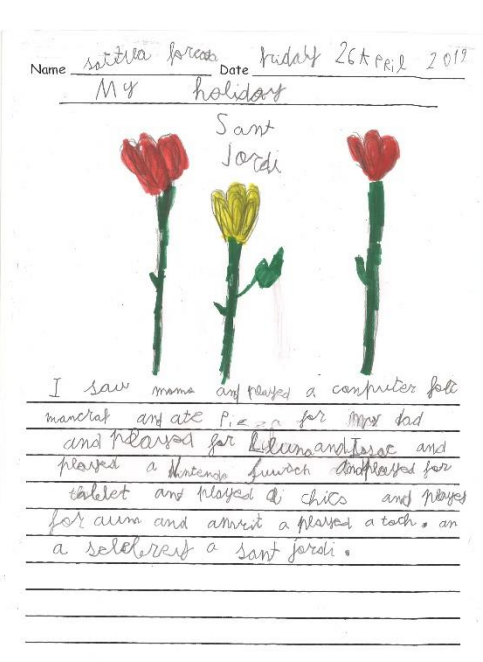 Name sattva forcada Date friday 26 April 2019
My holiday
Sant
Jordi
I saw mama and played a computer
mancraf and ate Pizza for my dad
and played for Luna and Isaac and
played a Nintendo and played for
tablet and played di chics and played
for auna and a played a toch. an
a selebrey a sant jordi.